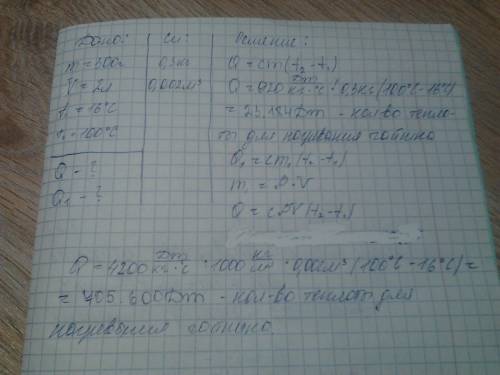 Дано:
m = 300г
V = 2л
t₁ = 16°C
t₂ = 100°C
Q - ?
Q₁ - ?
Си:
0,3кг
0,002м³
Решение:
Q = cm(t₂-t₁)
Q = 920 Дж/кг·°C · 0,3кг(100°C-16°C)
= 23.184Дж - кол-во тепло-
ты для нагревания
Q₁ = cm₁(t₂-t₁)
m₁ = ρ·V
Q = cρV(t₂-t₁)
Q = 4200 Дж/кг·°C · 1000 кг/м³ · 0,002м³(100°C-16°C) =
= 705.600Дж - кол-во теплоты для
нагревания